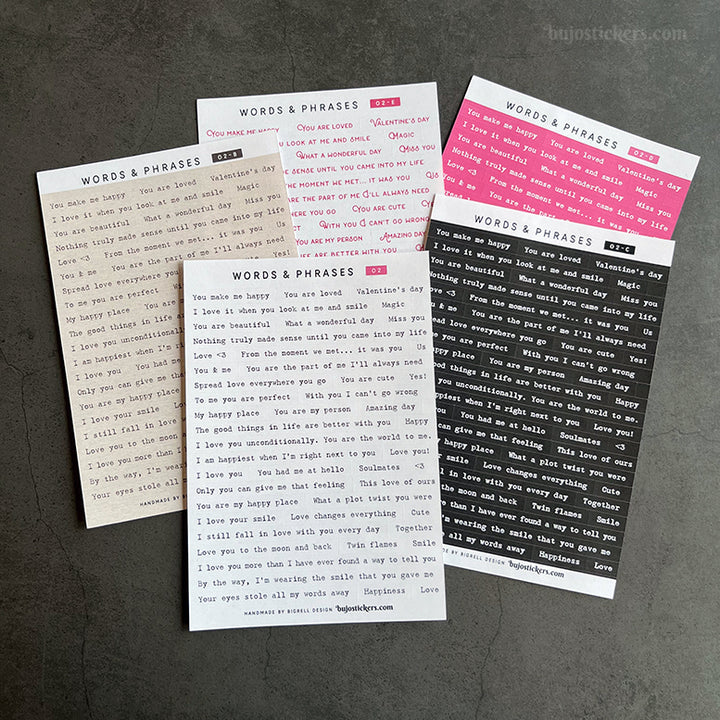 bujostickers.com
WORDS & PHRASES 02-E
YOU MAKE ME HAPPY YOU ARE LOVED VALENTINE'S DAY
YOU LOOK AT ME AND SMILE MAGIC
WHAT A WONDERFUL DAY MISS YOU
MADE SENSE UNTIL YOU CAME INTO MY LIFE
THE MOMENT WE MET... IT WAS YOU
YOU ARE THE PART OF ME I'LL ALWAYS NEED
YOU GO YOU ARE CUTE
WITH YOU I CAN'T GO WRONG
YOU ARE MY PERSON AMAZING DAY
LIFE ARE BETTER WITH YOU
WORDS & PHRASES 02-D
You make me happy You are loved Valentine's day
I love it when you look at me and smile Magic
You are beautiful What a wonderful day Miss you
Nothing truly made sense until you came into my life
Love <3 From the moment we met... it was you
You are the part
WORDS & PHRASES 02-B
You make me happy You are loved Valentine's day
I love it when you look at me and smile Magic
You are beautiful What a wonderful day Miss you
Nothing truly made sense until you came into my life
Love <3 From the moment we met... it was you Us
You & me You are the part of me I'll always need
Spread love everywhere you
To me you are perfect With
My happy place You are
The good things in life are
I love you unconditionally.
I am happiest when I'm right
I love you You had me
Only you can give me that
You are my happy place
I love your smile Love
I still fall in love with
Love you to the moon and
I love you more than I have
By the way, I'm wearing
Your eyes stole all my
HANDMADE BY BIGRELL
WORDS & PHRASES 02-C
You make me happy You are loved Valentine's day
I love it when you look at me and smile Magic
You are beautiful What a wonderful day Miss you
Nothing truly made sense until you came into my life
Love <3 From the moment we met... it was you Us
You & me You are the part of me I'll always need
Spread love everywhere you go You are cute Yes!
me you are perfect With you I can't go wrong
happy place You are my person Amazing day
good things in life are better with you Happy
you unconditionally. You are the world to me.
happiest when I'm right next to you Love you!
you You had me at hello Soulmates <3
can give me that feeling This love of ours
my happy place What a plot twist you were
smile Love changes everything Cute
in love with you every day Together
the moon and back Twin flames Smile
more than I have ever found a way to tell you
I'm wearing the smile that you gave me
all my words away Happiness Love
MADE BY BIGRELL DESIGN bujostickers.com
WORDS & PHRASES 02
You make me happy You are loved Valentine's day
I love it when you look at me and smile Magic
You are beautiful What a wonderful day Miss you
Nothing truly made sense until you came into my life
Love <3 From the moment we met... it was you Us
You & me You are the part of me I'll always need
Spread love everywhere you go You are cute Yes!
To me you are perfect With you I can't go wrong
My happy place You are my person Amazing day
The good things in life are better with you Happy
I love you unconditionally. You are the world to me.
I am happiest when I'm right next to you Love you!
I love you You had me at hello Soulmates <3
Only you can give me that feeling This love of ours
You are my happy place What a plot twist you were
I love your smile Love changes everything Cute
I still fall in love with you every day Together
Love you to the moon and back Twin flames Smile
I love you more than I have ever found a way to tell you
By the way, I'm wearing the smile that you gave me
Your eyes stole all my words away Happiness Love
HANDMADE BY BIGRELL DESIGN bujostickers.com